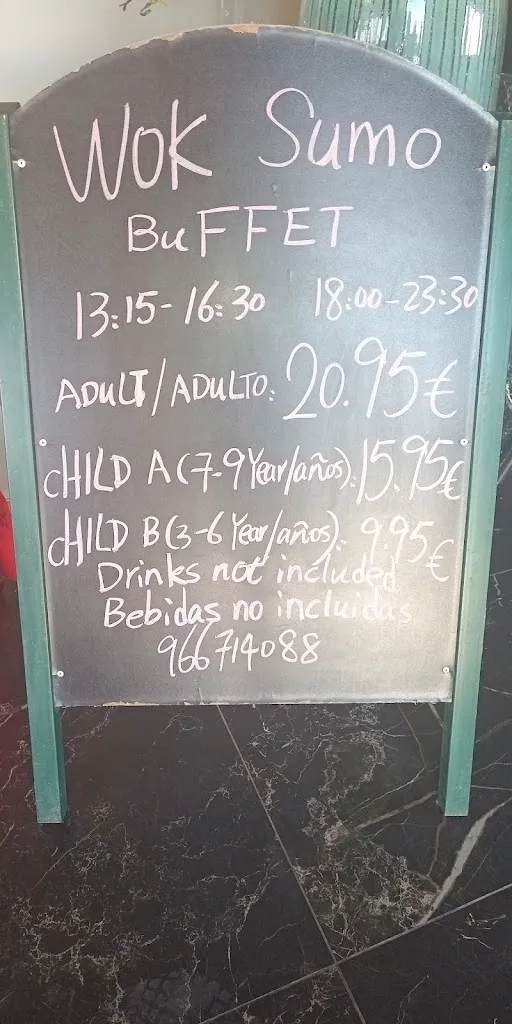 WOK Sumo
BuFFET
13:15-16:30 18:00-23:30
ADULT/ADULTO: 20.95€
CHILD A(7-9Year/años): 15.95€
CHILD B(3-6Year/años): 9.95€
Drinks not included
Bebidas no incluidas
966714088